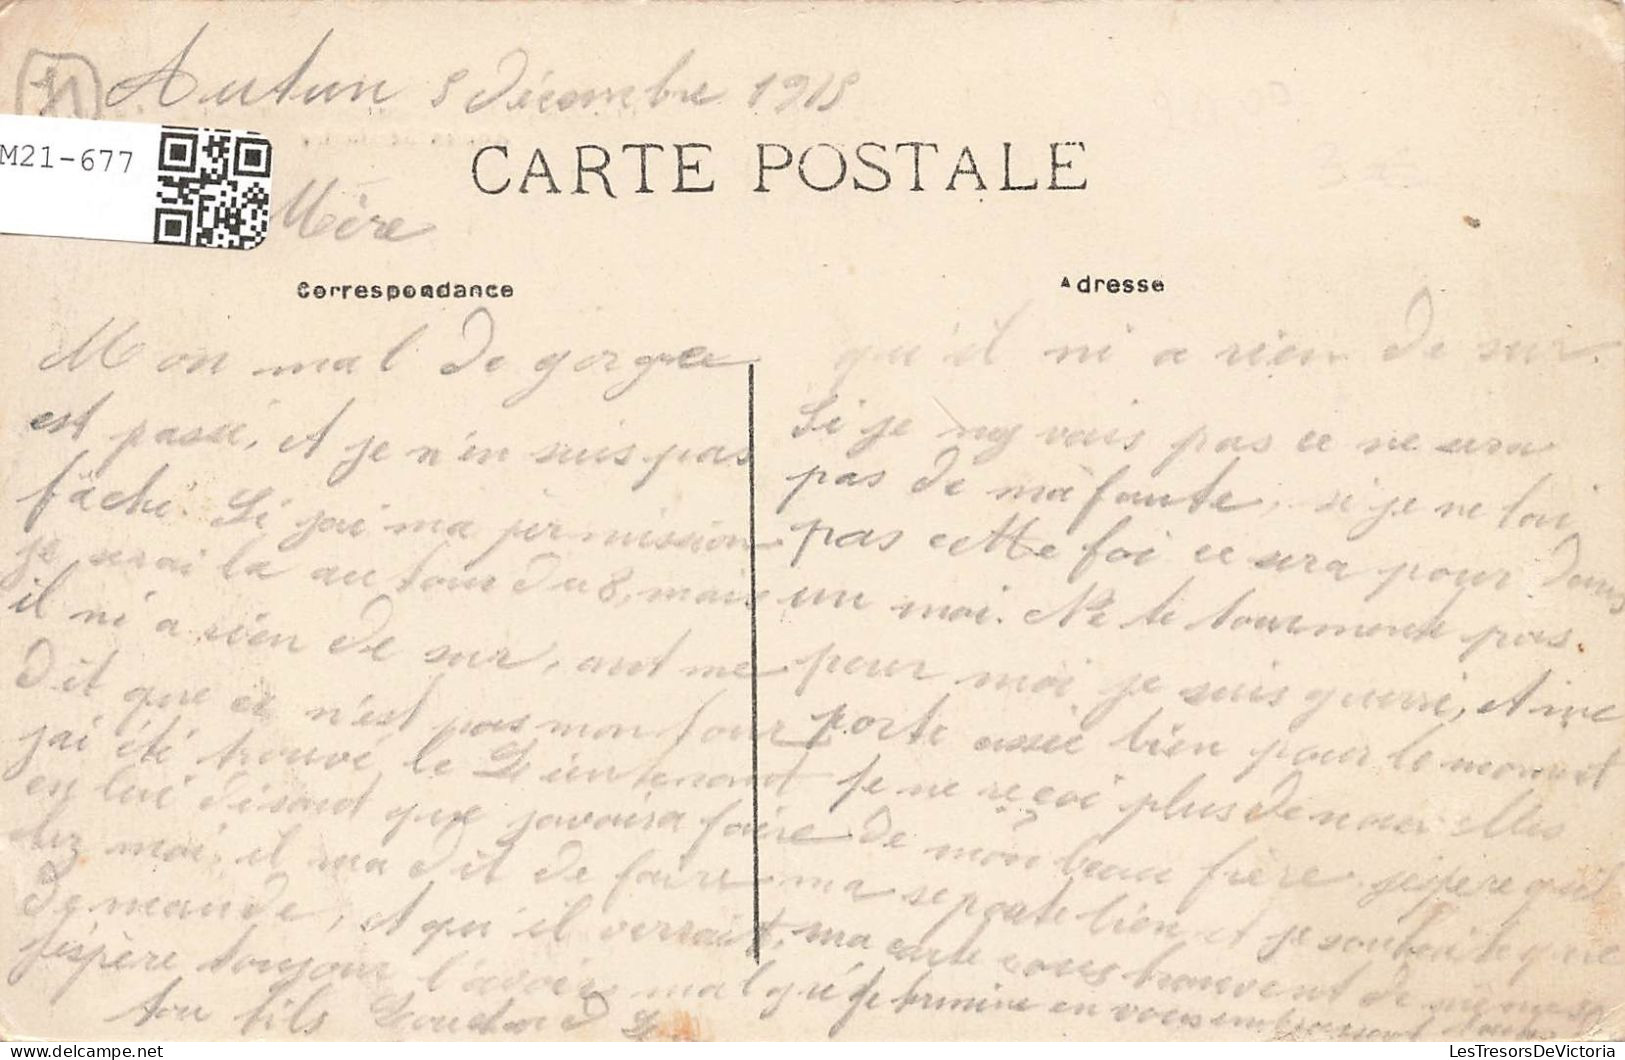 Autun 5 décembre 1915
M21-677
CARTE POSTALE
Mère
Correspondance
Mon mal de gorge
est passé, et je n'en suis pas
fâché. Si jai ma permission
je serai la autour du 8, mais
il ni a rien de sur, ont me
dit que ce n'est pas mon tour
jai été trouvé le Lieutenant
en lui disant que javais a faire
chez moi, il ma dit de faire
demande, et qu'il verrait,
j'éspère toujour l'avoir malgré
ton fils
Adresse
qu'il ni a rien de sur.
Si je ny vais pas ce ne sera
pas de ma faute, si je ne lai
pas cette foi ce sera pour dans
un moi. Ne te tourmente pas.
pour moi je suis guerri, et me
porte assé bien pour le moment
Je ne reçoi plus de nouvelles
de mon beau frère jéspère quil
ma se porte bien et je souhaite que
ma carte vous trouvent de même
je termine en vous embrassant
LesTresorsDeVictoria